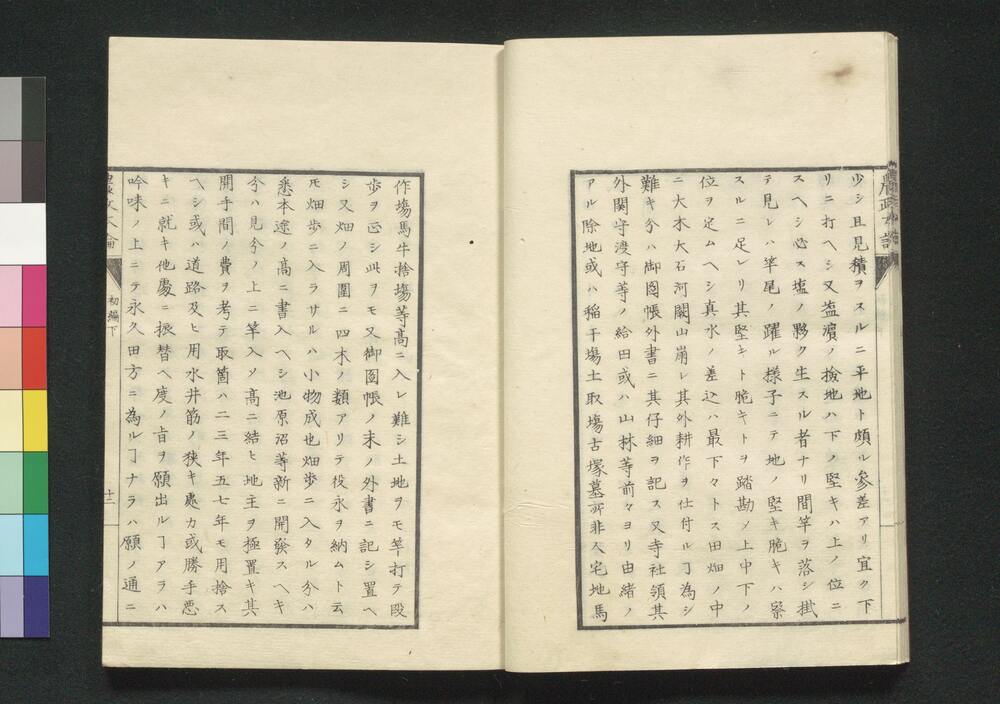 少シ且見積ヲスルニ平地ト頗ル参差アリ宜ク下
リニ打ヘシ又塩濵ノ撿地ハ下ノ堅キハ上ノ位ニ
スヘシ必ス塩ノ夥ク生スル者ナリ間竿ヲ落シ掛
テ見レハ竿尾ノ躍ル様子ニテ地ノ堅キ脆キハ察
スルニ足レリ其堅キト脆キトヲ踏勘メ上中下ノ
位ヲ定ムヘシ真水ノ差込ハ最下々トス田畑ノ中
ニ大木大石河闕山崩レ其外耕作ヲ仕付ルヿ為シ
難キ分ハ御圖帳外書ニ其仔細ヲ記ス又寺社領其
外関守渡守等ノ給田或ハ山林等前々ヨリ由緒ノ
アル除地或ハ稲干塲土取塲古塚墓所非人宅地馬
作塲馬牛捨塲等高ニ入レ難シ土地ヲモ竿打テ段
歩ヲ正シ此ヲモ又御圖帳ノ末ノ外書ニ記シ置ヘ
シ又畑ノ周圍ニ四木ノ類アリテ役永ヲ納ムト云
𪜈畑歩ニ入ラサルハ小物成也畑歩ニ入タル分ハ
悉本途ノ高ニ書入ヘシ池原沼等新ニ開發スヘキ
分ハ見分ノ上ニ竿入ソ高ニ結ヒ地主ヲ極置キ其
開手間ノ費ヲ考テ取箇ハ二三年五七年モ用捨ス
ヘシ或ハ道路及ヒ用水井筋ノ狭キ處カ或勝手悪
キニ就キ他處ニ振替ヘ度ノ旨ヲ願出ルヿアラハ
吟味ノ上ニテ永久田方ニ為ルヿナラハ願ノ通ニ
初編下
十二